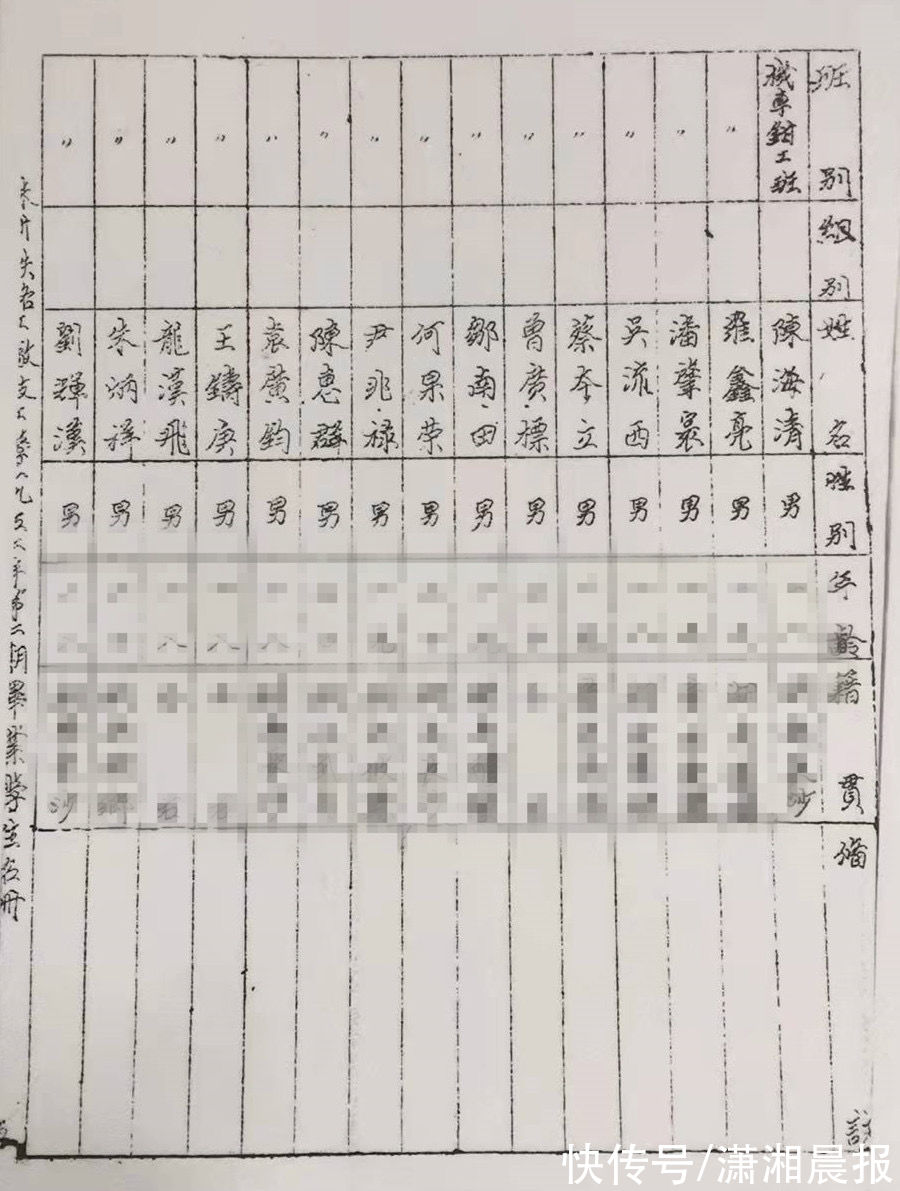 班别
組别
姓名
性别
年齡
籍貫
備註
機車鉗工班
陳海清
男
沙
〃
羅鑫亮
男
〃
潘肇襄
男
〃
吳流西
男
〃
蔡本立
男
〃
曾廣標
男
〃
鄒南田
男
〃
何果荣
男
〃
尹兆禄
男
〃
陳惠群
男
〃
袁廣鈞
男
〃
王鑄庚
男
〃
龍漢飛
男
〃
朱炳祥
男
〃
劉輝漢
男
沙
年第二期畢業學生名冊
快传号/潇湘晨报